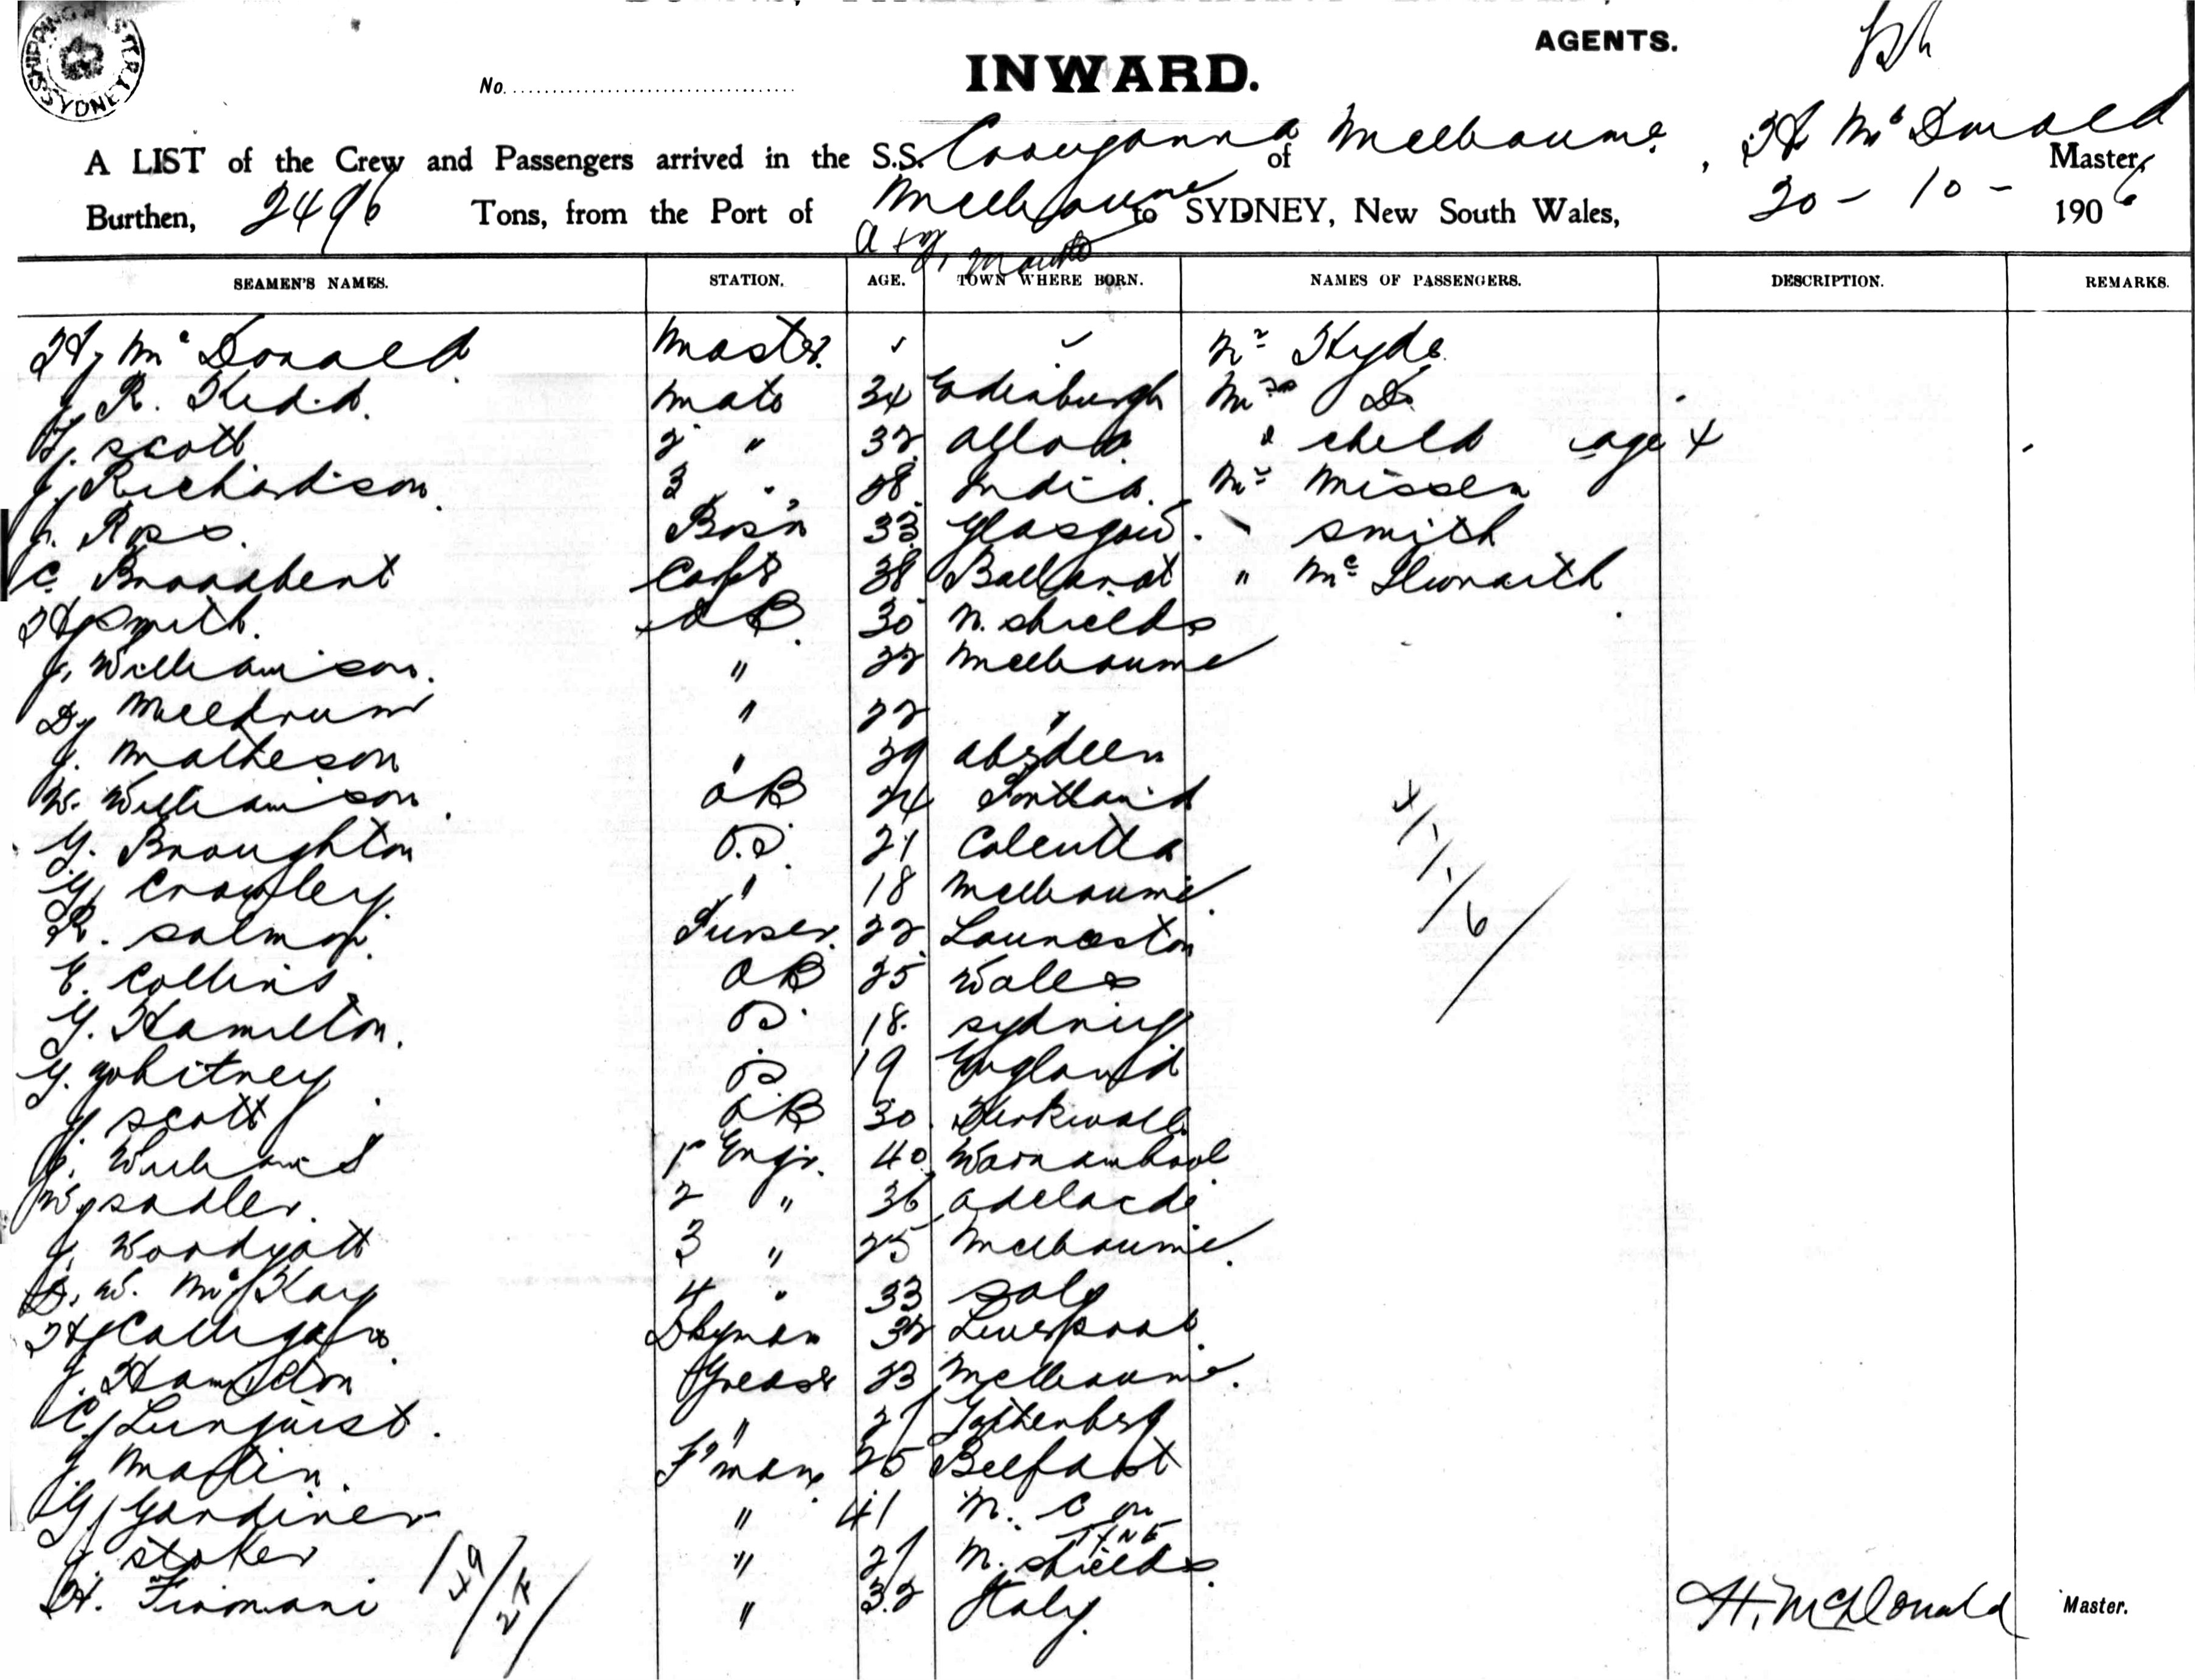 SHIPPING MASTER SYDNEY
AGENTS.
No.
INWARD.
A LIST of the Crew and Passengers arrived in the S.S. Cooyanna of Melbourne, H McDonald Master,
Burthen, 2496 Tons, from the Port of Melbourne to SYDNEY, New South Wales, 20 - 10 - 1906
SEAMEN'S NAMES. STATION. AGE. TOWN WHERE BORN. NAMES OF PASSENGERS. DESCRIPTION. REMARKS.
H, McDonald Master Mr Hyde
J, R. Kidd. Mate 34 Edinburgh Mrs Do
J. Scott 2 " 32 Alloa " child age 4
J, Richardson 3 " 28 India. Mr Missen
J. Ross. Bos'n 33 Glasgow. " Smith
C Broadbent Carptr 38 Ballarat " McIlwraith
H, Smith. AB 30 N. Shields
J, Williamson. " 22 Melbourne
D, Meldrum " 22 "
J. Matheson " 39 Aberdeen
W. Williamson AB 24 Portland
G. Broughton O.S. 21 Calcutta
G, Crowley. " 18 Melbourne.
R. Salmon Purser. 22 Launceston
E. Collins AB 25 Wales
G. Hamilton. OS. 18. Sydney
G. Whitney OS 19 England
J. Scott AB 30. Kirkwall
J. Williams 1st Engr. 40 Warnambool
W, Sadler. 2 " 36 Adelaide
J, Woodyatt 3 " 25 Melbourne.
D. W. McKay 4 " 33 Sale
H, Dkyman 32 Liverpool.
J. Hamilton Greaser 23 Melbourne.
C, Lunquist. " 27 Gothenberg
J. Martin. F'man. 25 Belfast
G, Gardiner " 41 N. C on
TYNE
J Stoker " 27 N. Shields.
H. Fiomani " 32 Italy.
H. McDonald Master.